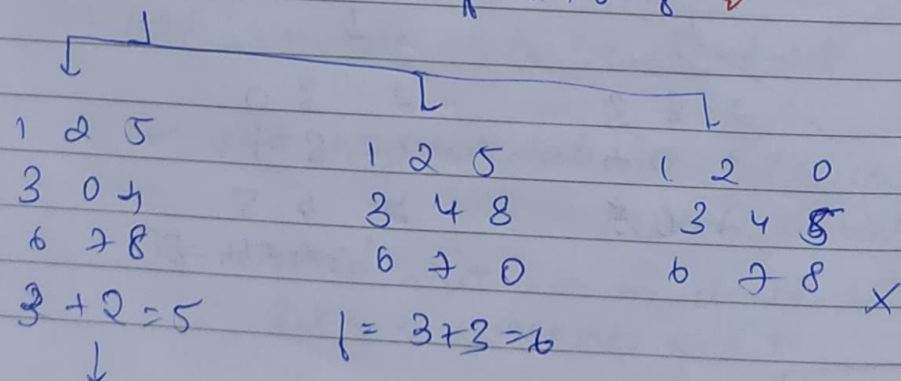 1 2 5
3 0 4
6 7 8
3 + 2 = 5
1 2 5
3 4 8
6 7 0
f = 3+3 = 6
1 2 0
3 4 5
6 7 8 ×